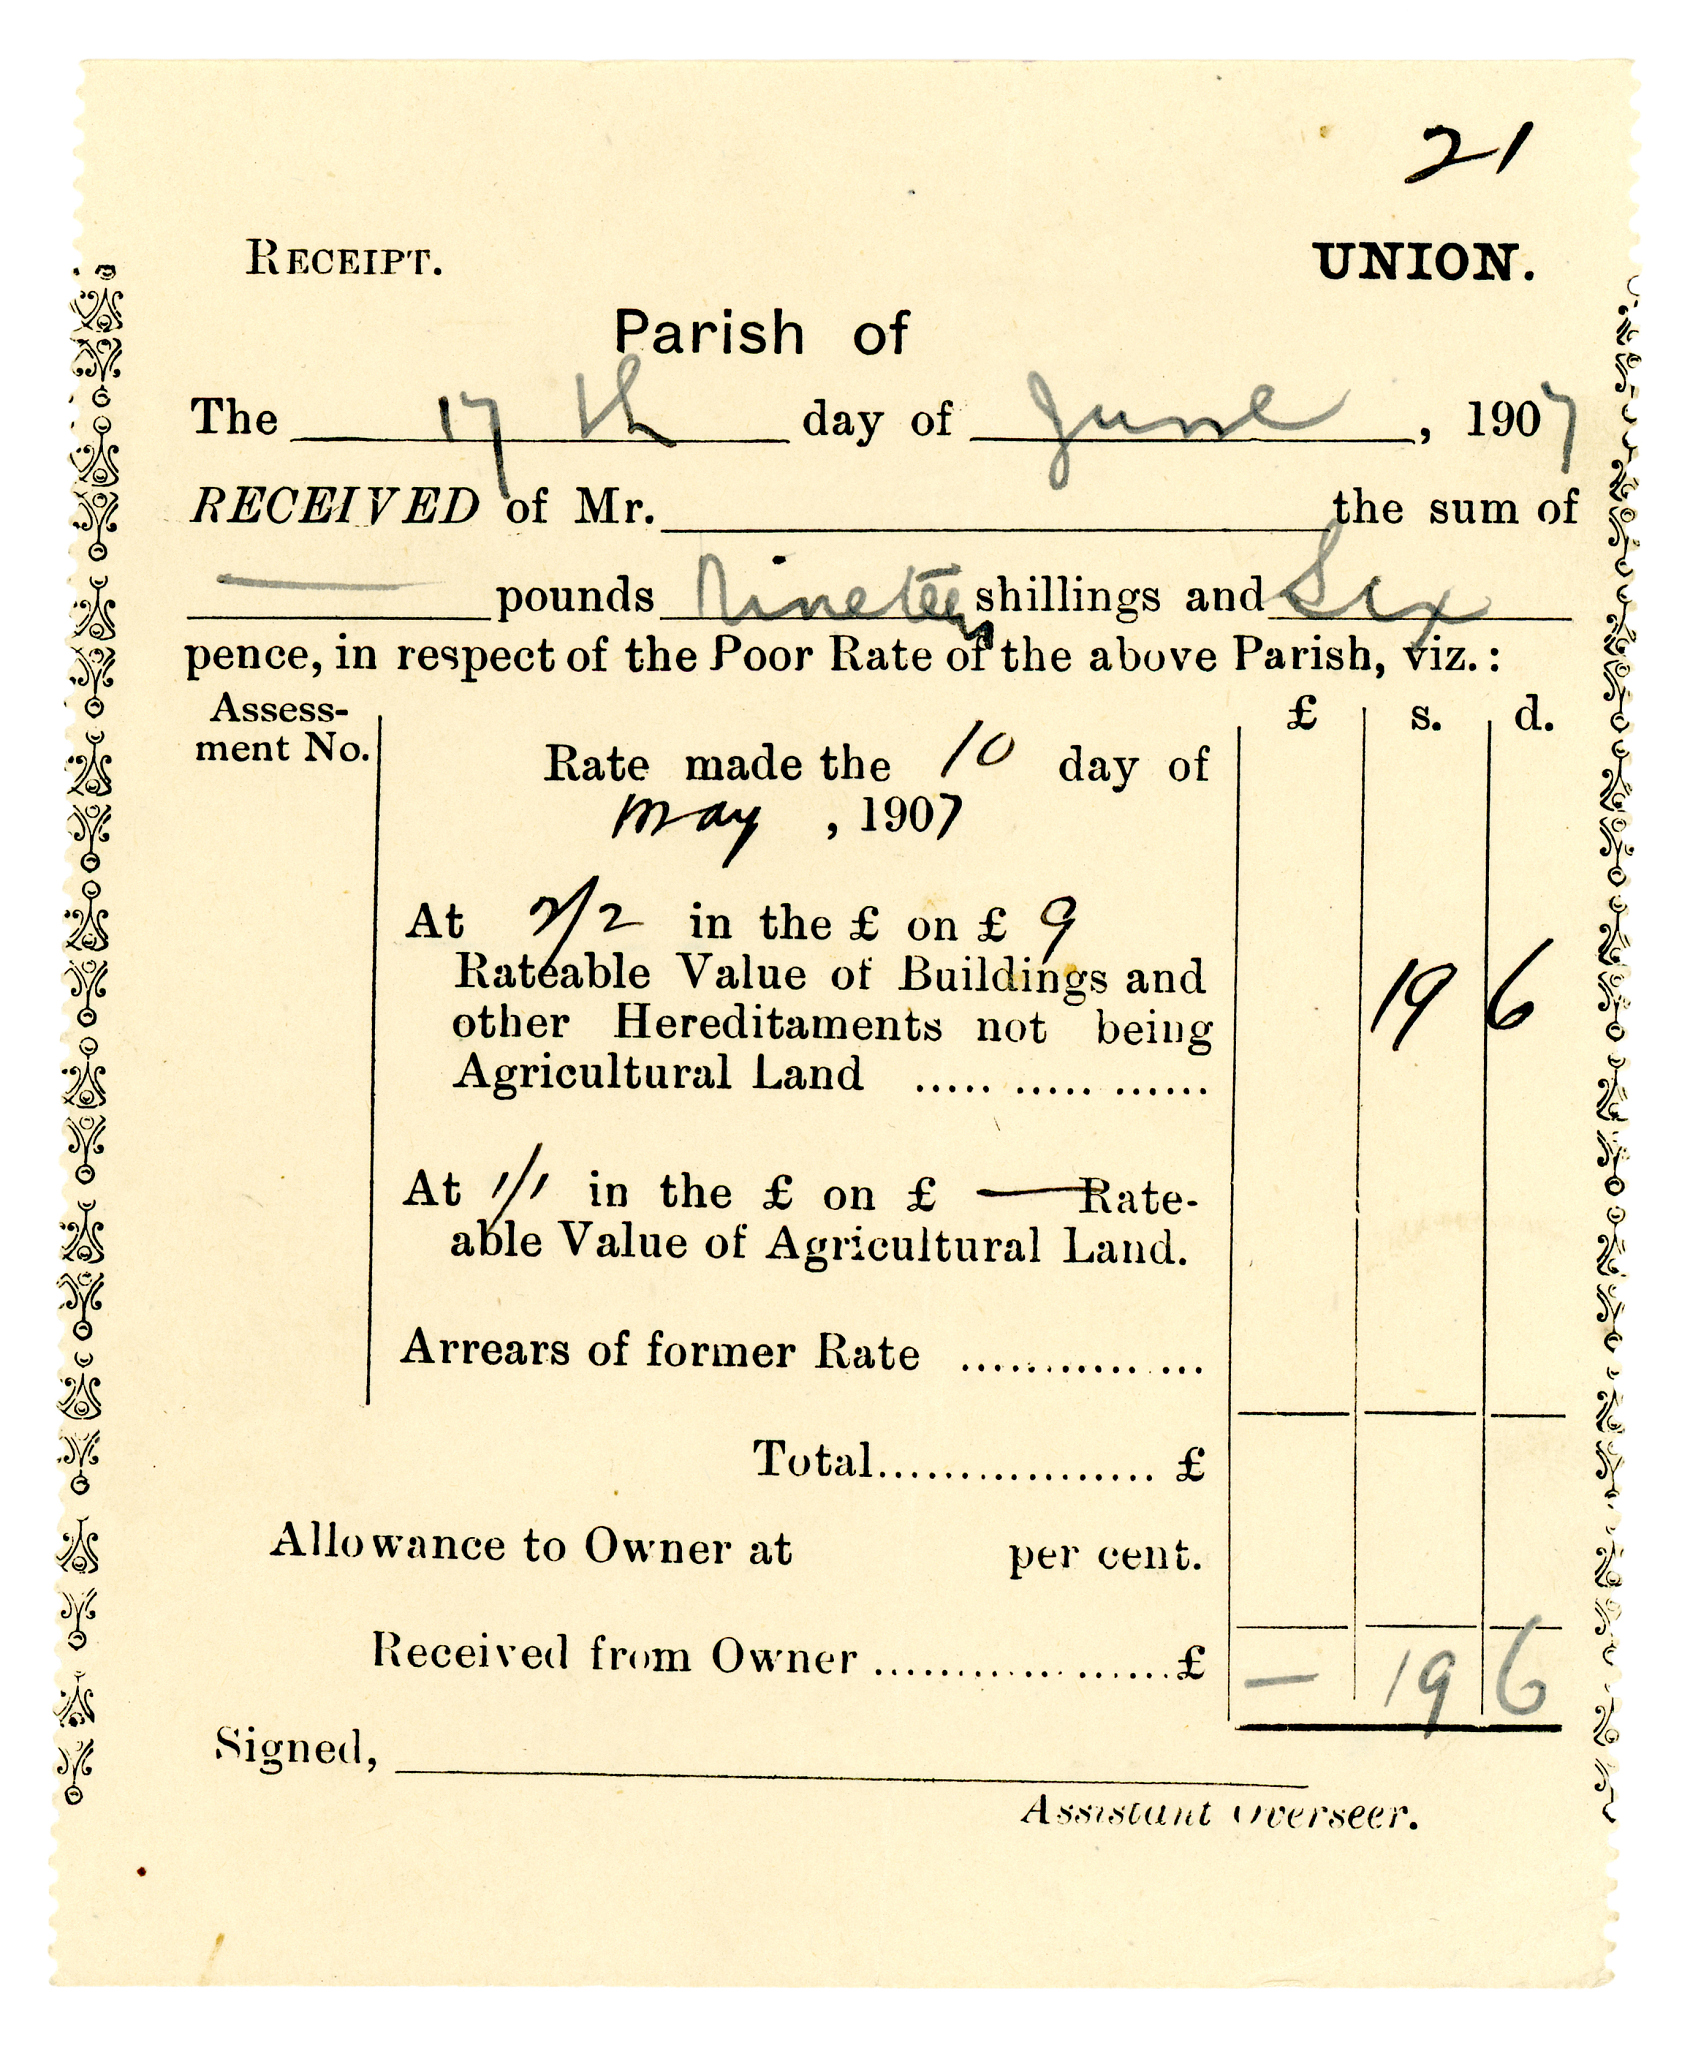 21
RECEIPT. UNION.
Parish of
The 17th day of June, 1907
RECEIVED of Mr. the sum of
— pounds Nineteen shillings and Six
pence, in respect of the Poor Rate of the above Parish, viz.:
Assess-
ment No.
£ s. d.
Rate made the 10 day of
May, 1907
At 2/2 in the £ on £ 9
Rateable Value of Buildings and
other Hereditaments not being
Agricultural Land ..... ..... ...... 19 6
At 1/1 in the £ on £ — Rate-
able Value of Agricultural Land.
Arrears of former Rate ............ ...
Total.................. £
Allowance to Owner at per cent.
Received from Owner ..................£ — 19 6
Signed,
Assistant Overseer.